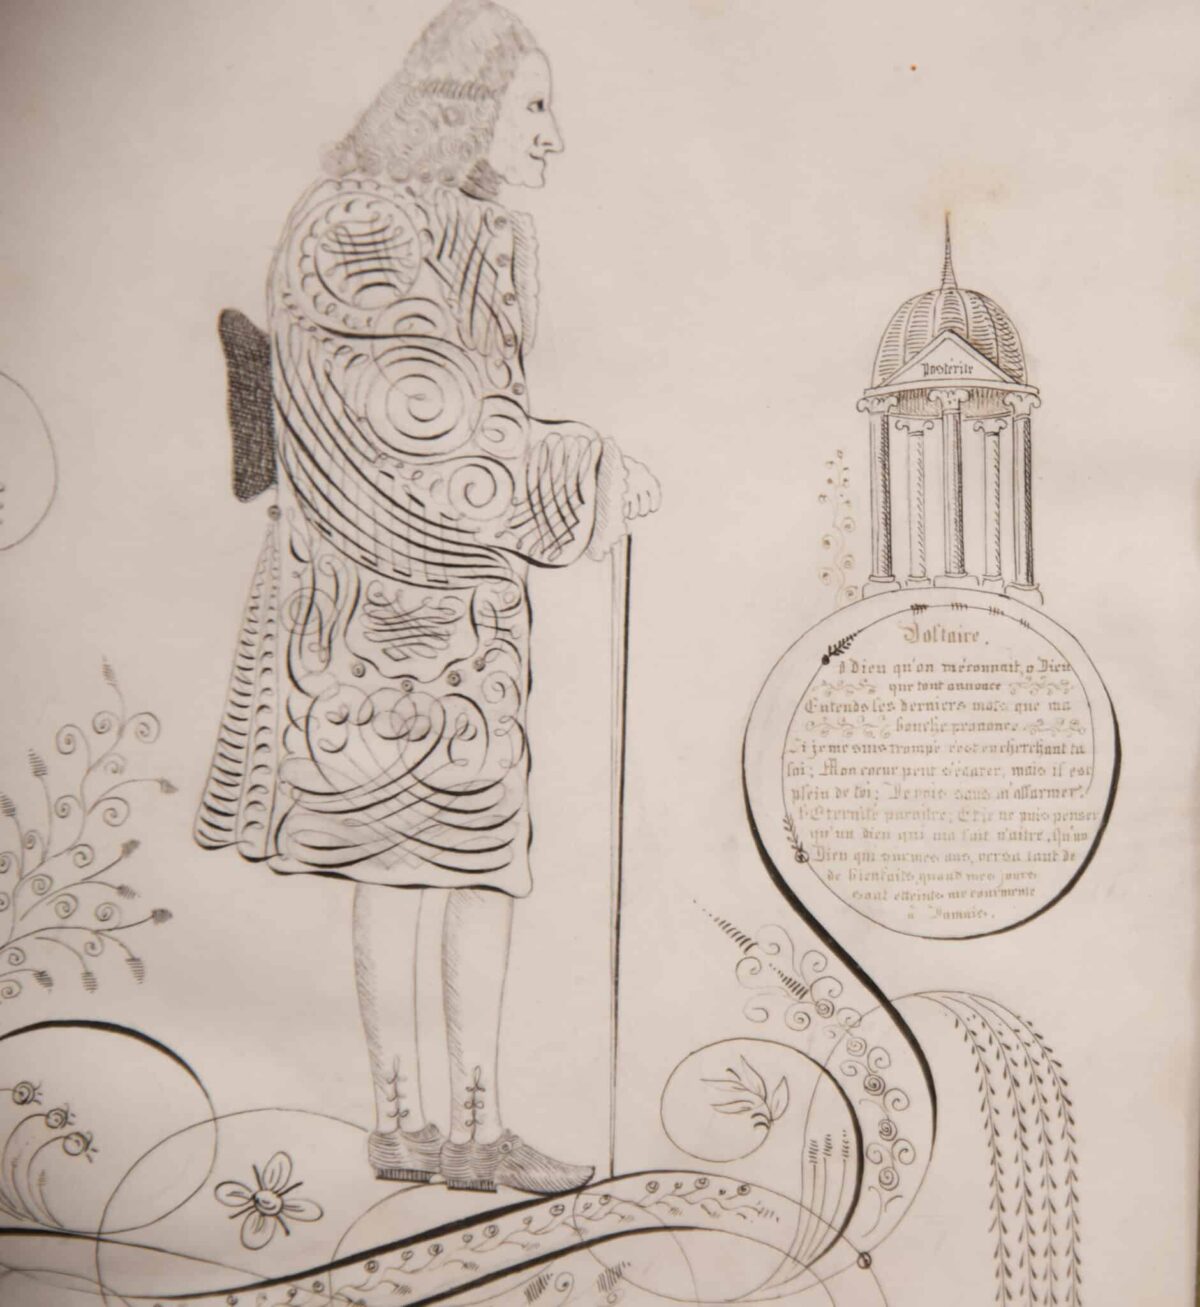 Postérité
Voltaire.
O Dieu qu'on méconnait, o Dieu
que tout annonce
Entends les derniers mots que ma
bouche prononce.
Si je me suis trompé c'est en cherchant ta
loi; Mon coeur peut s'égarer, mais il est
plein de toi; Je vois sans m'allarmer
l'Eternité paraitre, Et je ne puis penser
qu'un dieu qui m'a fait naitre, Qu'un
Dieu qui sur mes ans, versa tant de
de bienfaits, quand mes jours
sont etteints me tourmente
à Jamais.